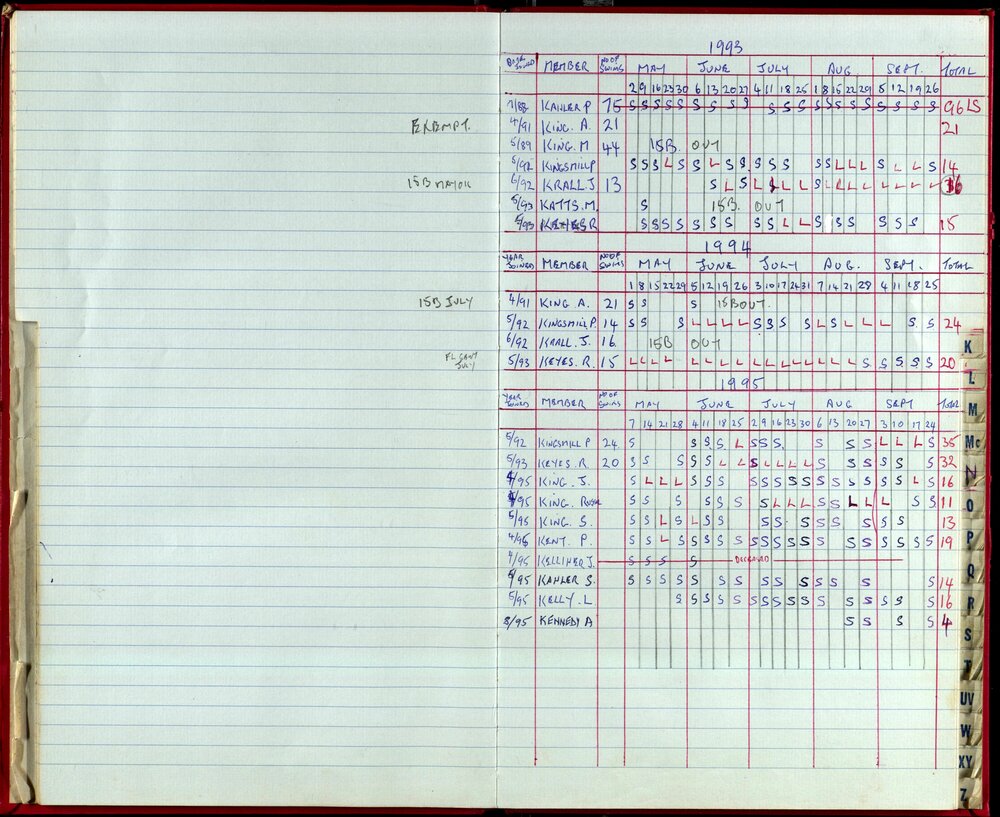 1993
MEMBER NO OF SWIMS MAY JUNE JULY AUG SEPT. TOTAL
2 9 16 23 30 6 13 20 27 4 11 18 25 1 8 15 22 29 5 12 19 26
7/88 KAHLER P 75 S S S S S S S S S S S S S S S S S S S S S 96 LS
EXEMPT. 4/91 KING. A. 21 21
5/89 KING. M 44 15B. OUT
5/92 KINGSMILL P S S S L S S L S S S S S S S L L L S L L S 14
15B MAYOR 6/92 KRALL J 13 S L S L L L L S L L L L L L L L 16
5/93 KATTS. M. S 15B. OUT
5/93 KEYES R S S S S S S S S S S S L L S S S S S S 15
1994
YEAR JOINED MEMBER NO OF SWIMS MAY JUNE JULY AUG. SEPT. TOTAL
1 8 15 22 29 5 12 19 26 3 10 17 24 31 7 14 21 28 4 11 18 25
15B JULY 4/91 KING A. 21 S S S 15B OUT.
5/92 KINGSMILL P. 14 S S S L L L L S S S S S L S L L L S S 24
6/92 KRALL. J. 16 15B OUT
JULY 5/93 KEYES. R. 15 L L L L L L L L L L L L L L L L S S S S S S 20
1995
YEAR JOINED MEMBER NO OF SWIMS MAY JUNE JULY AUG SEPT TOTAL
7 14 21 28 4 11 18 25 2 9 16 23 30 6 13 20 27 3 10 17 24
5/92 KINGSMILL P 24 S S S S L S S S S S S L L L S 35
5/93 KEYES. R 20 S S S S S L L S L L L L S S S S S S 32
4/95 KING. J. S L L L S S S S S S S S S S S S S S L S 16
4/95 KING. S S S S S S S L L L S S L L L S S 11
5/95 KING. S. S S L S L S S S S S S S S S S S 13
4/95 KENT. P. S S L S S S S S S S S S S S S S S S S S 19
4/95 KELLIHER J. S S S S DECEASED
5/95 KAHLER S. S S S S S S S S S S S S S S 14
5/95 KELLY. L S S S S S S S S S S S S S S S S 16
8/95 KENNEDY A S S S S 4
K
L
M
Mc
N
O
P
Q
R
S
T
UV
W
XY
Z